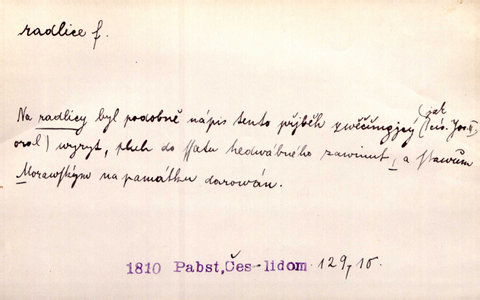 radlice f.
Na radlicy byl podobně nápis tento přjběh zwěčňugjcý (jak cís. Jos. II.
oral) wyryt, pluh do ssatu hedwábného zawinut, a stawům
Morawským na památku darowán.
1810 Pabst, Čes-lidom 129, 10.